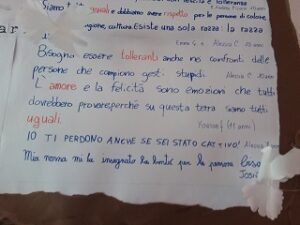 Siamo tutti uguali e dobbiamo avere rispetto per le persone di colore,
cultura. Esiste una sola razza: la razza
ar
Emma G. e Alessia C. anni
Bisogna essere tolleranti anche nei confronti delle
persone che compiono gesti stupidi. Alessia C. 10 anni
L' amore e la felicità sono emozioni che tutti
dovrebbero provare perché su questa terra siamo tutti
uguali. Youssef (11 anni)
IO TI PERDONO ANCHE SE SEI STATO CATTIVO! Alessio
Mia nonna mi ha insegnato la bontà per le persone